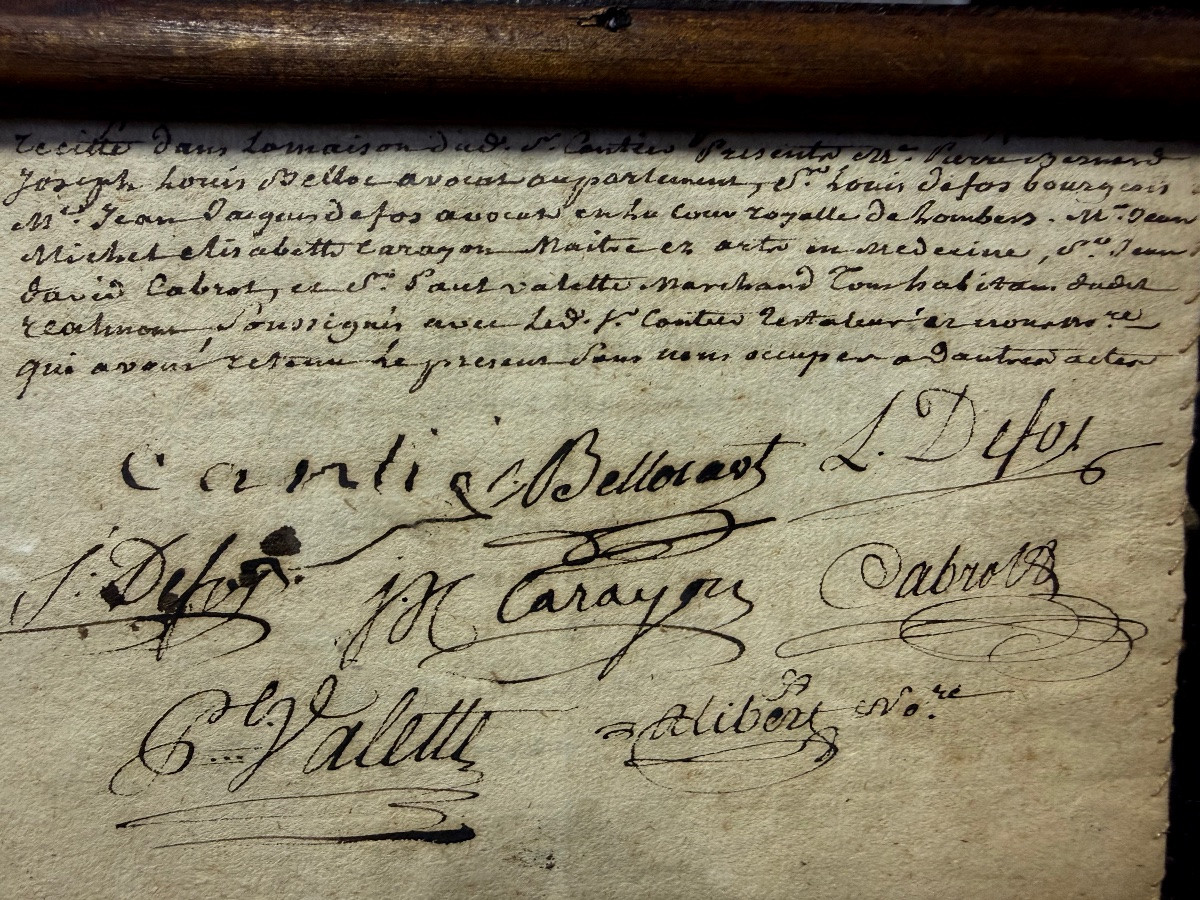 recitté dans lamaison dud. Sr. Cantier Presents Me. Pierre Bernard
Joseph Louis Belloc avocat auparlement, Sr. Louis defos bourgeois
Me. Jean Jacques defos avocat en la Cour royalle de Lombers. Me. Jean
Michel elisabeth Carayon Maitre ez arts en Medecine, Sr. Jean
david Cabrol, et Sr. Paul valette Marchand Tous habitans dudit
realmont Soussignés avec led. Sr. Cantier Testateur et nous nore
qui avons retenu Le present Sans nous occuper a dautres actes
Cantié Belloc avt L. Defos
J. Defos. JM Carayon Cabrol
Pl. Valette Alibert No.re